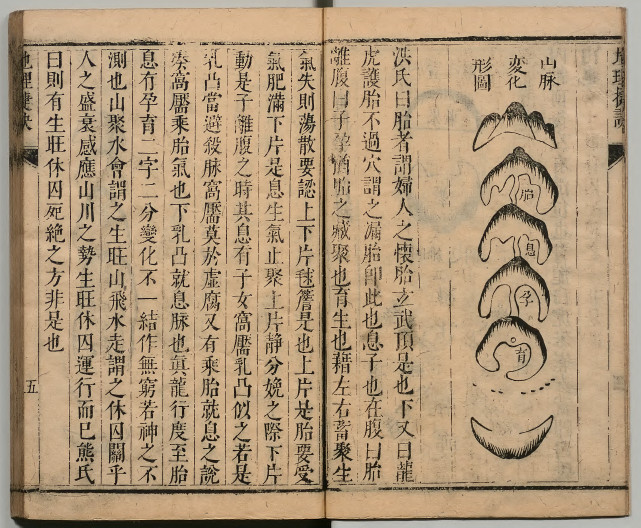 山脉
變化
形圖
胎
息
孕
育
洪氏曰胎者謂婦人之懷胎玄武頂是也下又曰龍
虎護胎不過穴謂之漏胎卽此也息子也在腹曰胎
離腹曰子孕猶胎之藏聚也育生也藉左右畜聚生
氣失則蕩散要認上下片毬簷是也上片是胎要受
氣肥滿下片是息生氣止聚上片靜分娩之際下片
動是子離腹之時其息有子女窩靨乳凸似之若是
乳凸當避殺脉窩靨莫於虛腐又有乘胎就息之說
湊高靨乘胎氣也下乳凸就息脉也眞龍行度至胎
息有孕育二字二分變化不一結作無窮若神之不
測也山聚水會謂之生旺山飛水走謂之休囚關乎
人之盛衰感應山川之勢生旺休囚運行而已熊氏
曰則有生旺休囚死絶之方非是也
地理捷訣
五